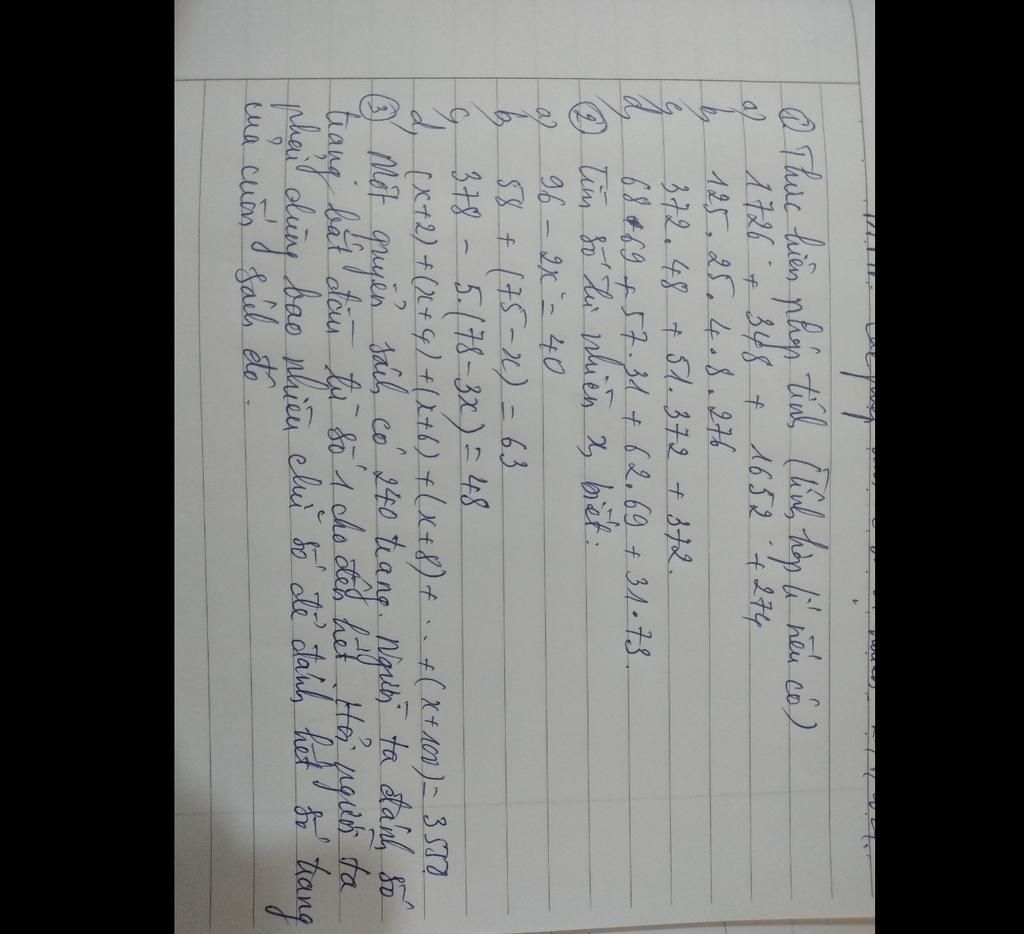 ① Thực hiện phép tính (Tính hợp lí nếu có)
a) 1726 + 348 + 1652 + 274
b, 125.25.4.8.276
c, 372.48 + 51.372 + 372.
d, 68.69 + 57.31 + 62.69 + 31.73.
② Tìm số tự nhiên x, biết:
a) 96 - 2x = 40
b, 58 + (75 - x) = 63
c, 378 - 5.(78 - 3x) = 48
d, (x+2) + (x+4) + (x+6) + (x+8) + ... + (x+100) = 3550
③ Một quyển sách có 240 trang. Người ta đánh số
trang bắt đầu từ số 1 cho đến hết. Hỏi người ta
phải dùng bao nhiêu chữ số để đánh hết số trang
của cuốn sách đó.